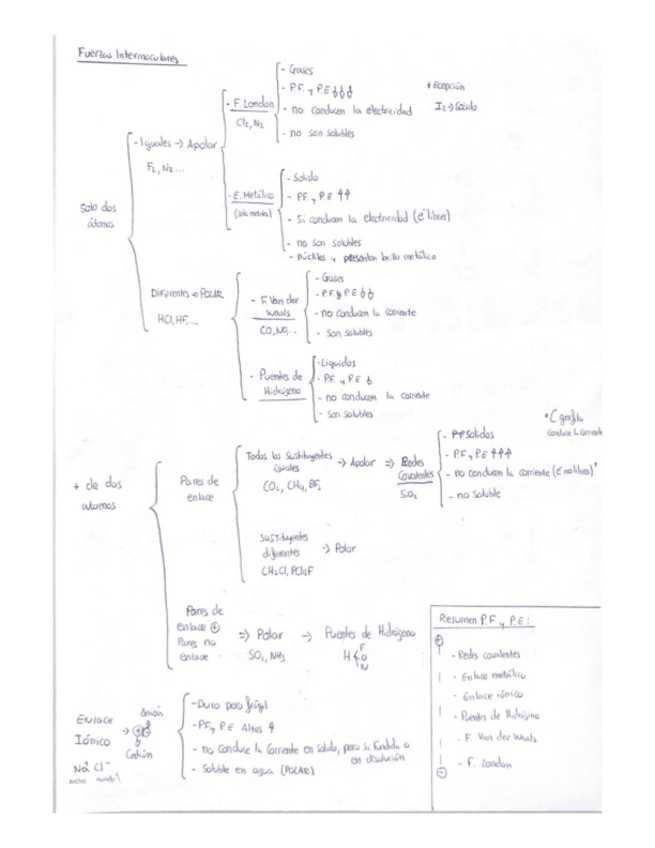 Fuerzas Intermoculares
Solo dos
átomos
- Iguales → Apolar
F₂, N₂...
- F. London
Cl₂, N₂
- Gases
- P.F. y P.E ↓↓↓
- no conducen la electricidad
- no son solubles
* Ecepción
I₂ → Solido
- E. Metálico
(solo metales)
- Solido
- P.F. y P.E ↑↑
- Si conducen la electricidad (e⁻ libres)
- no son solubles
- Dúctiles y presentan brillo metálico
Diferentes → POLAR
HCl, HF...
- F. Van der
Waals
- Gases
- P.F. y P.E ↓↓
- no conducen la corriente
- Son solubles
- Puentes de
Hidrógeno
- Liquidos
- P.F. y P.E ↓
- no conducen la corriente
- Son solubles
+ de dos
atomos
Pares de
enlace
Todos los sustituyentes
iguales
CO₂, CH₄, BF₃
→ Apolar ⇒ Redes
Covalentes
SiO₂
- Solidos
- P.F. y P.E ↑↑↑
- no conducen la corriente (é no libres)*
- no soluble
* C grafito
conduce la corriente
Sustituyentes
diferentes → Polar
Pares de
enlace ⊕
Pares no
enlace
⇒ Polar → Puentes de Hidrógeno
SO₂, NH₃
H F O N
Enlace
Iónico
Na⁺ Cl⁻
Anión
Catión
- Duro pero frágil
- P.F y P.E Altos ↑
- no conduce la corriente en solido, pero si fundido o
en disolución
- Soluble en agua (POLAR)
Resumen P.F y P.E:
⊕
- Redes covalentes
- Enlace metálico
- Enlace iónico
- Puentes de Hidrógeno
- F. Van der Waals
- F. London
⊖